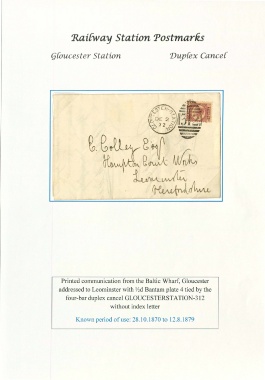 Railway Station Postmarks
Gloucester Station Duplex Cancel
C. Colley Esqr
Hampton Court Works
Leominster
Herefordshire
Printed communication from the Baltic Wharf, Gloucester
addressed to Leominster with ½d Bantam plate 4 tied by the
four-bar duplex cancel GLOUCESTERSTATION-312
without index letter
Known period of use: 28.10.1870 to 12.8.1879